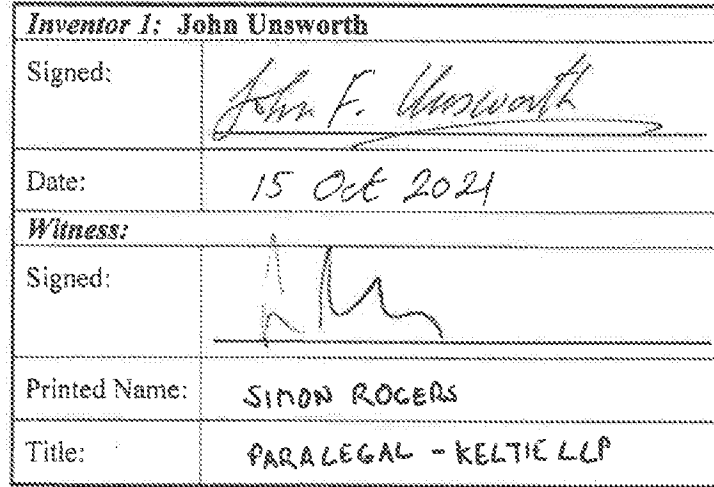 Inventor 1: John Unsworth
Signed: John F. Unsworth
Date: 15 Oct 2021
Witness:
Signed:
Printed Name: SIMON ROGERS
Title: PARALEGAL - KELTIE LLP